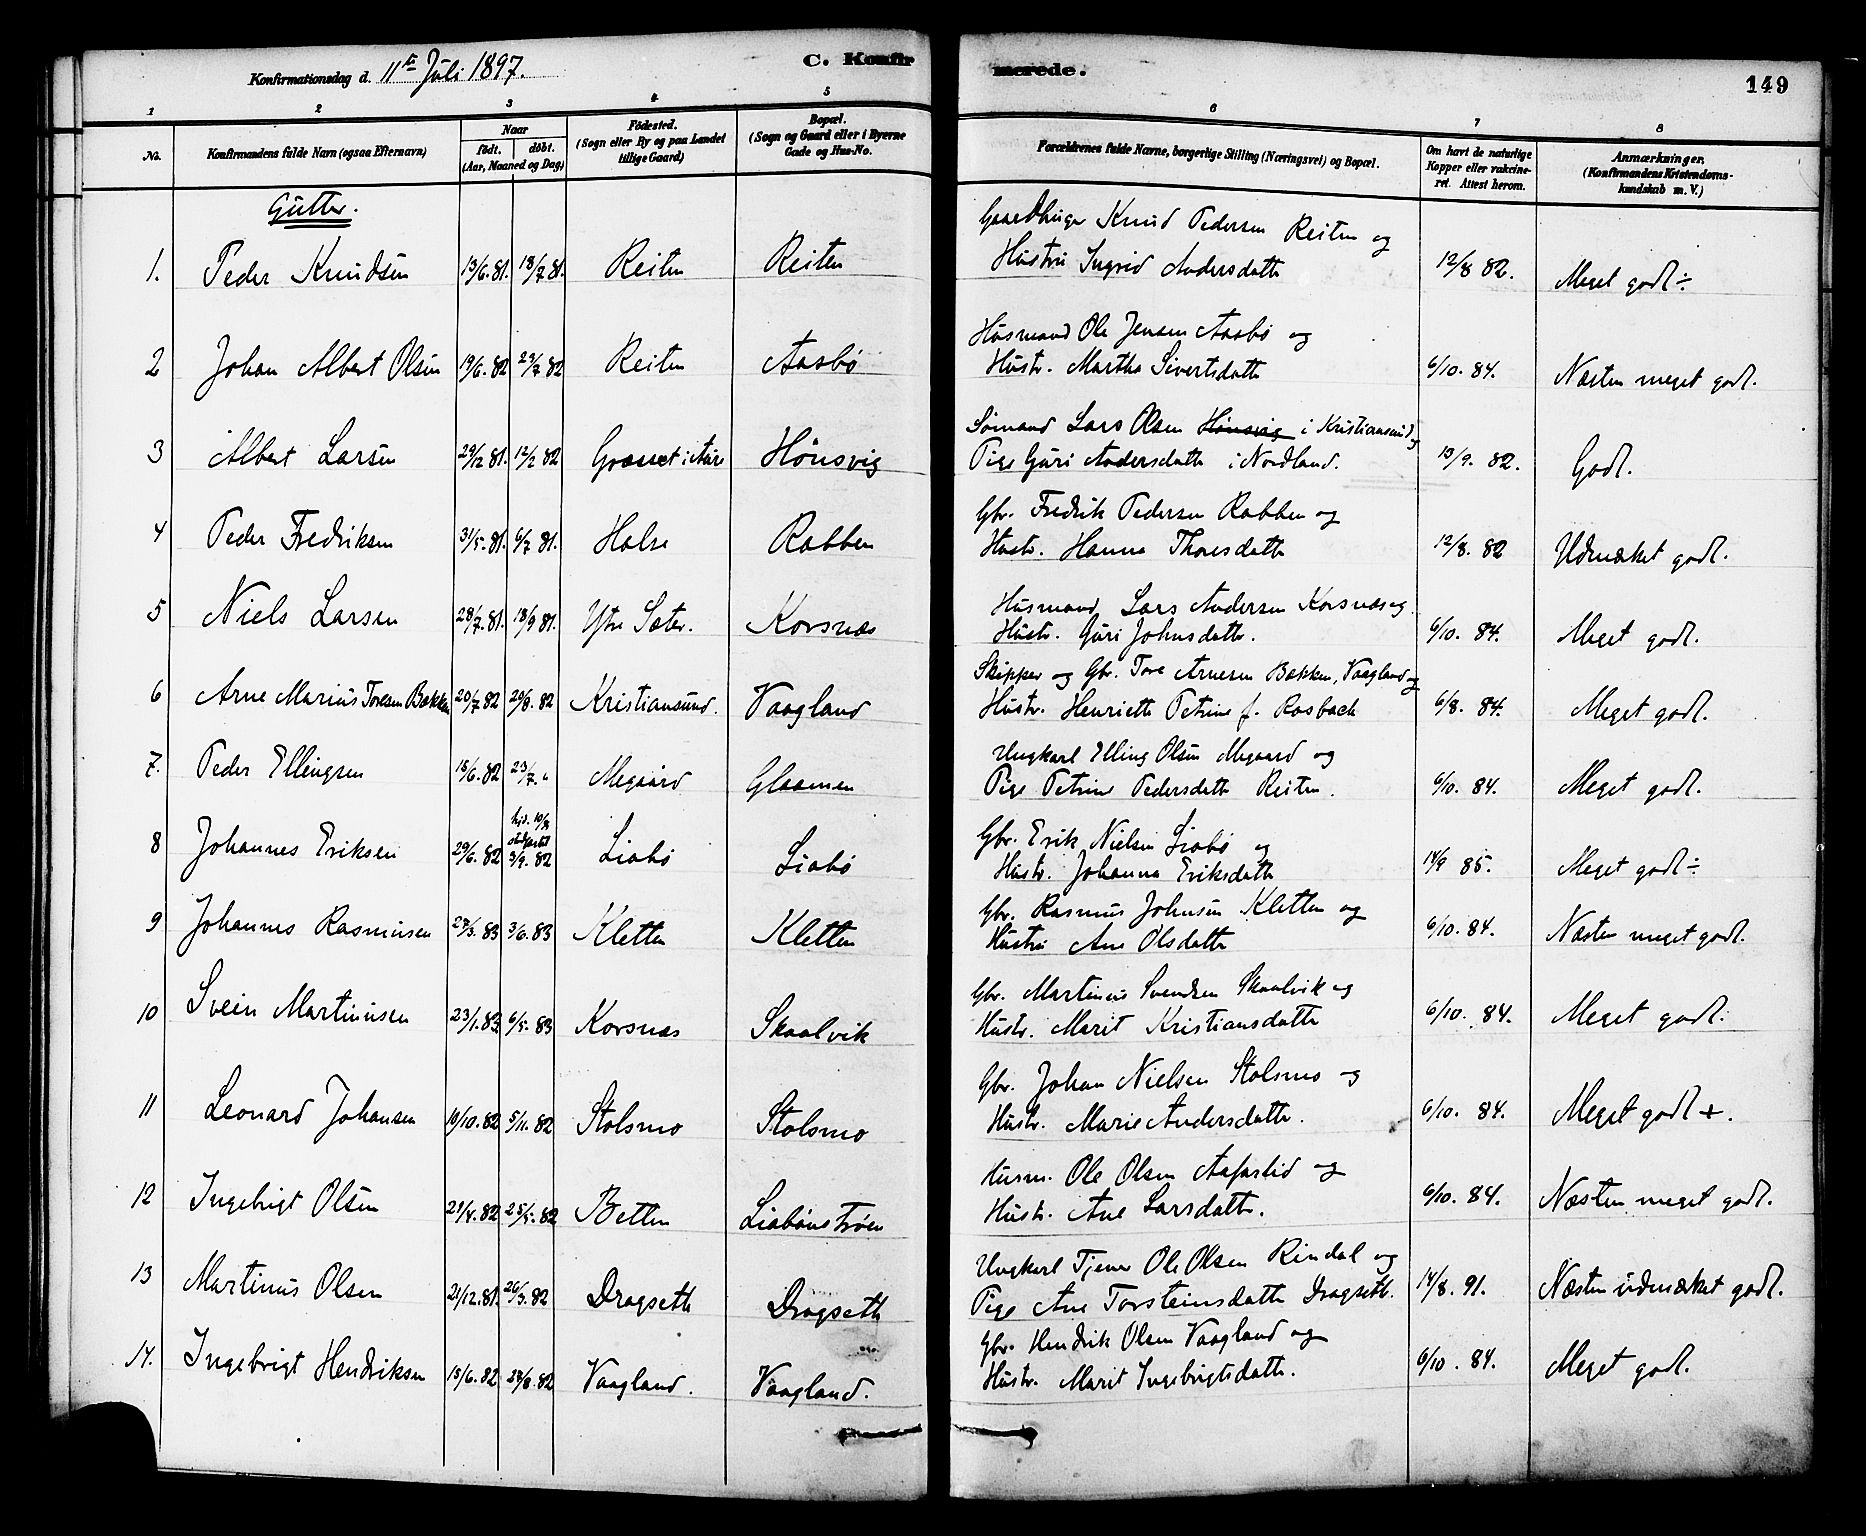 Konfirmationsdag d. 11te Juli 1897.
C. Konfir
merede.
149
1 2 3 4 5 6 7 8
No.
Konfirmandens fulde Navn (ogsaa Efternavn)
Naar
födt. döbt.
(Aar, Maaned og Dag)
Födested.
(Sogn eller By og paa Landet
tillige Gaard)
Bopæl.
(Sogn og Gaard eller i Byerne
Gade og Hus-No.
Forældrenes fulde Navne, borgerlige Stilling (Næringsvei) og Bopæl.
Om havt de naturlige
Kopper eller vakcine-
ret. Attest herom.
Anmærkninger.
(Konfirmandens Kristendoms-
kundskab m. V.)
Gutter.
Gaardbruger Knud Pedersen Reiten og
1. Peder Knudsen 13/6.81. 18/7 81. Reiten Reiten Hustru Ingrid Andersdatter 12/8 82. Meget godt ÷
Husmand Ole Jensen Aasbø og
2 Johan Albert Olsen 19/6.82 23/7 82 Reiten Aasbø Hustr. Martha Sivertsdatter 6/10. 84. Næsten meget godt.
Sømand Lars Olsen Hønsvig i Kristiansund og
3 Albert Larsen 29/12 81. 12/2 82 Grasset i Aure Hönsvig Pige Guri Andersdatter i Nordland. 13/9. 82. Godt.
Gbr. Fredrik Pedersen Rabben og
4 Peder Fredriksen 31/5.81. 6/7 81. Halse Rabben Hustr. Hanna Thoresdatter 12/8. 82 Udmærket godt.
Husmand Lars Andersen Korsnæs og
5 Niels Larsen 28/7.81. 18/9 81. Ytre Sæter. Korsnæs Hustr. Guri Johnsdatter. 6/10. 84. Meget godt.
Skipper og Gbr. Tore Arnesen Bakken, Vaagland og
6 Arne Marius Toresen Bakken 20/7 82 20/8. 82 Kristiansund. Vaagland Hustr. Henriette Petrine f. Rosbach 6/8. 84. Meget godt.
Ungkarl Elling Olsen Megaard og
7. Peder Ellingsen 18/6.82 23/7. " Megaard Glaamen Pige Petrine Pedersdatter Reiten. 6/10. 84. Meget godt.
hjd. 10/8
stadfæstet
Gbr. Erik Nielsen Liabø og
8 Johannes Eriksen 29/6. 82 3/9. 82 Liabø Liabø Hustr. Johanna Eriksdatter 14/9 85. Meget godt ÷
Gbr. Rasmus Johnsen Kletten og
9 Johannes Rasmusen 27/3.83 3/6.83 Kletten Kletten Hustru Ane Olsdatter 6/10. 84. Næsten meget godt.
Gbr. Martinus Svendsen Skaalvik og
10 Svein Martinusen 23/1.83 6/5. 83 Korsnæs Skaalvik Hustr. Marit Kristiansdatter 6/10. 84. Meget godt.
Gbr. Johan Nielsen Stolsmo og
11 Leonard Johansen 19/10.82 5/11.82 Stolsmo Stolsmo Hustr. Marie Andersdatter. 6/10. 84. Meget godt +.
Husm. Ole Olsen Aafarlid og
12 Ingebrigt Olsen 21/4.82 25/5.82 Betten Liabønstrøen Hustr. Ane Larsdatter. 6/10. 84. Næsten meget godt.
Ungkarl Tjener Ole Olsen Rindal og
13 Martinus Olsen 21/12.81. 26/3.82 Dragseth Dragseth Pige Ane Torsteinsdatter Dragseth. 14/8. 91. Næsten udmærket godt.
Gbr. Hendrik Olsen Vaagland og
14. Ingebrigt Hendriksen 15/6.82 28/8.82 Vaagland. Vaagland. Hustr. Marit Ingebrigtsdatter. 6/10. 84. Meget godt.